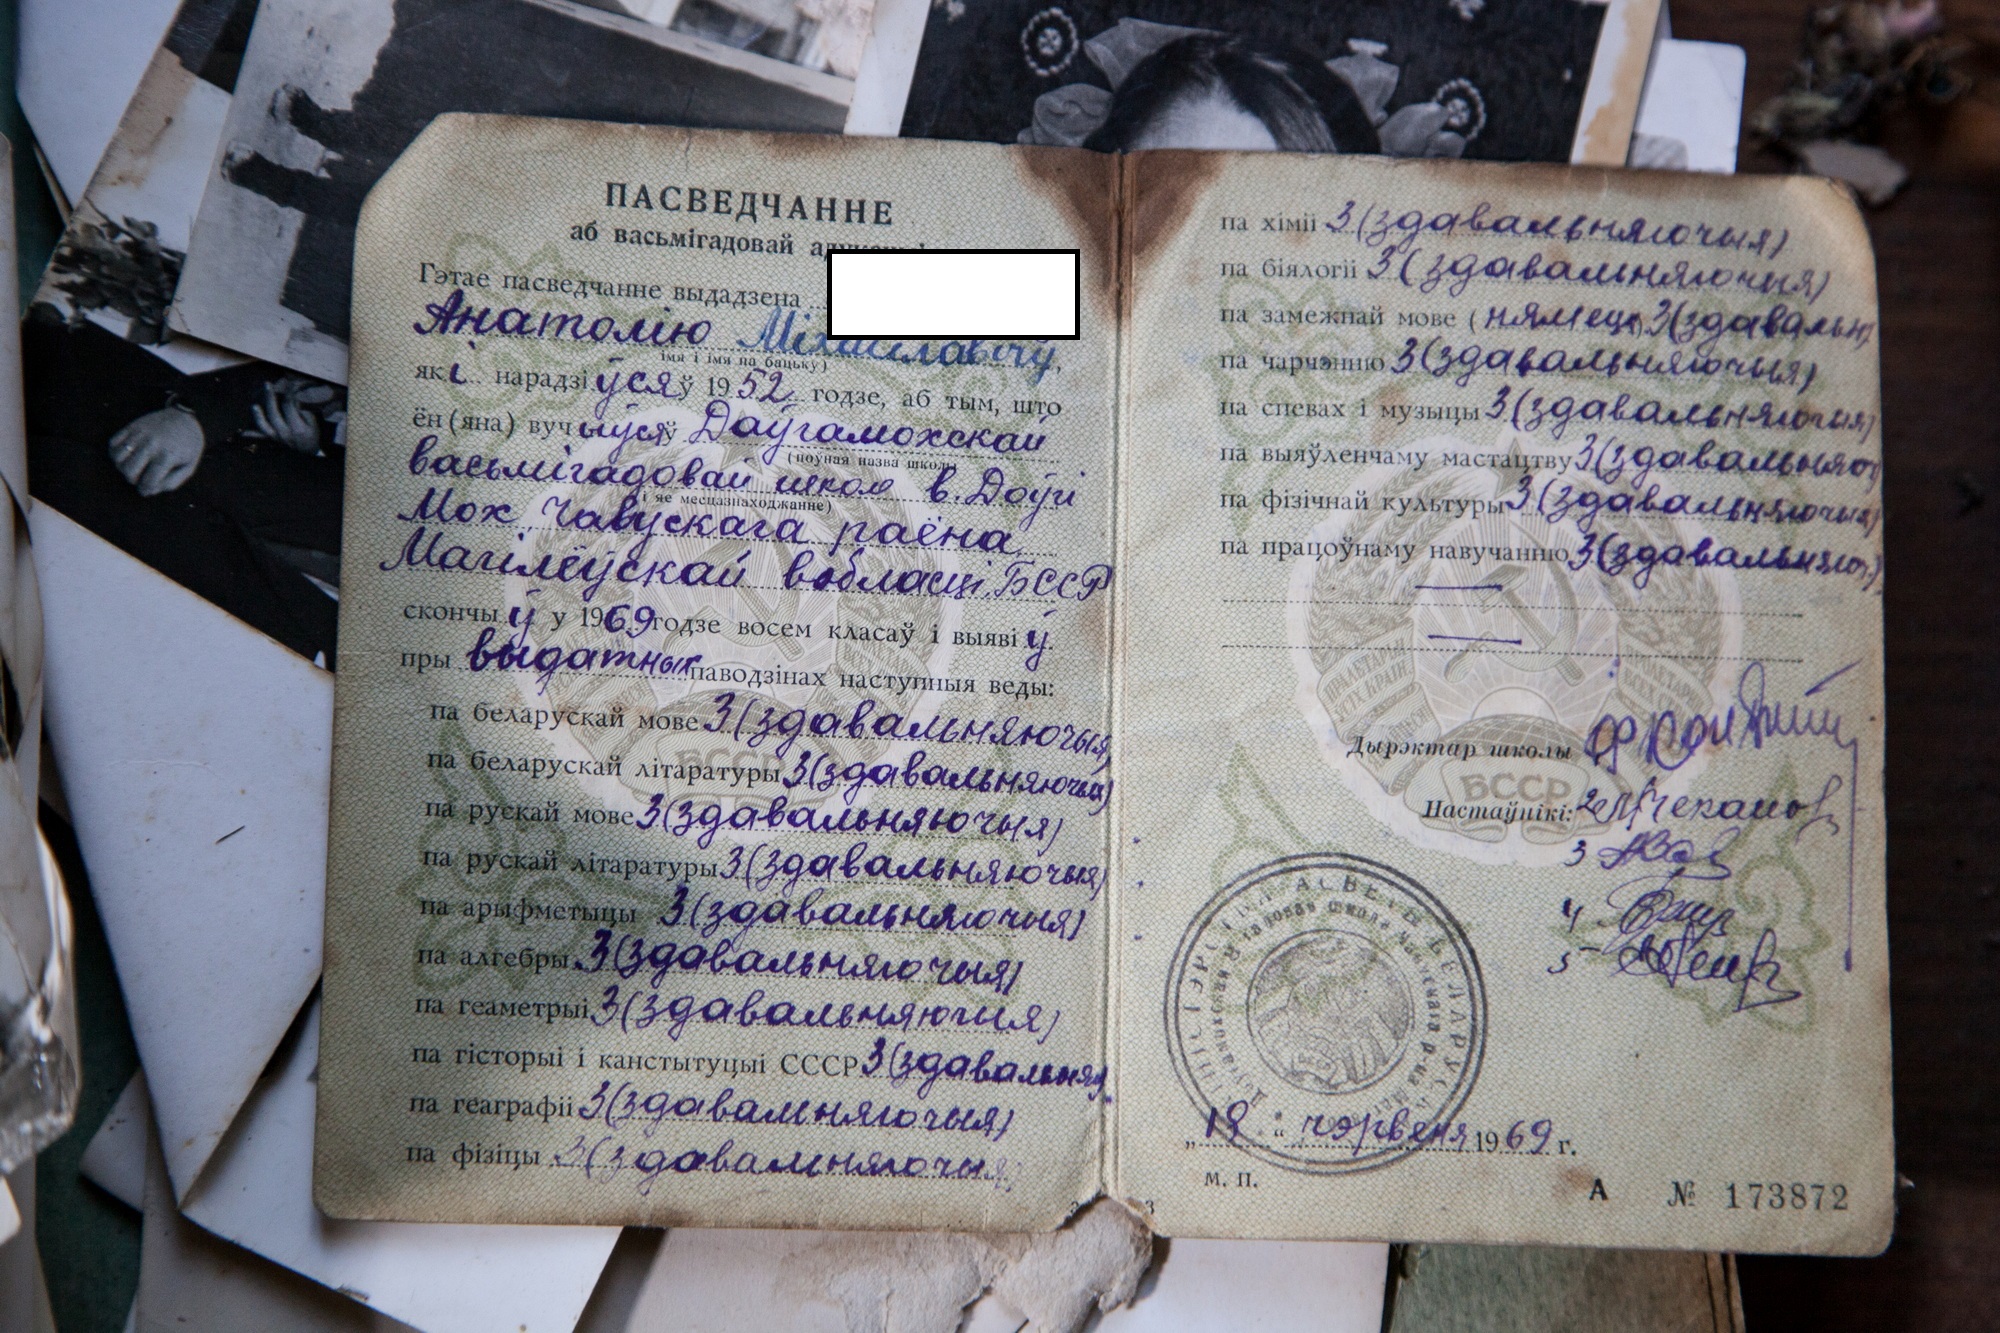 ПАСВЕДЧАННЕ
аб васьмігадовай
Гэтае пасведчанне выдадзена
Анатолію Міхайлавічу,
(імя і імя па бацьку)
які нарадзіўся ў 1952 годзе, аб тым, што
ён (яна) вучыўся ў Доўгамохскай
(поўная назва школы
васьмігадовай школе в. Доўгі
і яе месцазнаходжанне)
Мох, Чавускага раёна
Магілёўскай вобласці, БССР
скончыў у 1969 годзе восем класаў і выявіў
пры выдатных паводзінах наступныя веды:
па беларускай мове 3 (здавальняючыя)
па беларускай літаратуры 3 (здавальняючыя)
па рускай мове 3 (здавальняючыя)
па рускай літаратуры 3 (здавальняючыя)
па арыфметыцы 3 (здавальняючыя)
па алгебры 3 (здавальняючыя)
па геаметрыі 3 (здавальняючыя)
па гісторыі і канстытуцыі СССР 3 (здавальня
па геаграфіі 3 (здавальняючыя)
па фізіцы 3 (здавальняючыя)
па хіміі 3 (здавальняючыя)
па біялогіі 3 (здавальняючыя)
па замежнай мове (нямецк) 3 (здавальн)
па чарчэнню 3 (здавальняючыя)
па спевах і музыцы 3 (здавальняючыя)
па выяўленчаму мастацтву 3 (здавальняюч
па фізічнай культуры 3 (здавальняючыя)
па працоўнаму навучанню 3 (здавальняюч.)
БССР
БССР
Дырэктар школы
Настаўнікі: 2
3
4
5
МІНІСТЭРСТВА АСВЕТЫ БЕЛАРУС
школа
„18“ чэрвеня 1969 г.
М. П.
А № 173872